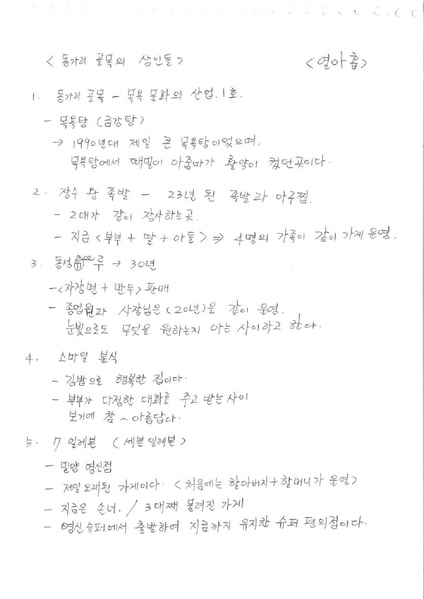 <동가리 골목의 상인들> <열아홉>
1. 동가리 골목 - 목욕 문화의 산업.1호.
- 목욕탕 (금강탕)
→ 1990년대 제일 큰 목욕탕이었으며,
목욕탕에서 때밀이 아줌마가 활약이 컸던곳이다.
2. 장수 왕 족발 - 23년 된 족발과 아구찜.
- 2대가 같이 장사하는곳.
- 지금 <부부 + 딸 + 아들> ⇒ 4명의 가족이 같이 가게 운영.
3. 동성 루 → 30년
- <자장면 + 만두> 판매
- 종업원과 사장님은 <20년>을 같이 운영.
눈빛으로도 무엇을 원하는지 아는 사이라고 한다.
4. 스마일 분식
- 김밥으로 행복한 집이다.
- 부부가 다정한 대화를 주고 받는사이
보기에 참~아름답다.
5. 7 일레븐 (세븐일레븐)
- 밀양 영신점
- 제일 오래된 가게이다. <처음에는 할아버지+할머니가 운영>
- 지금은 손녀. / 3대째 물려진 가게
- 영신슈퍼에서 출발하여 지금까지 유지한 슈퍼 편의점이다.